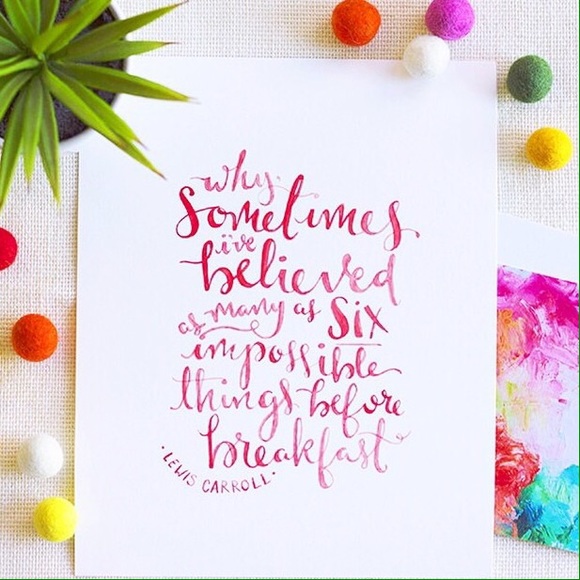 why.
sometimes
i've
believed
as many as six
impossible
things before
breakfast
· LEWIS CARROLL ·